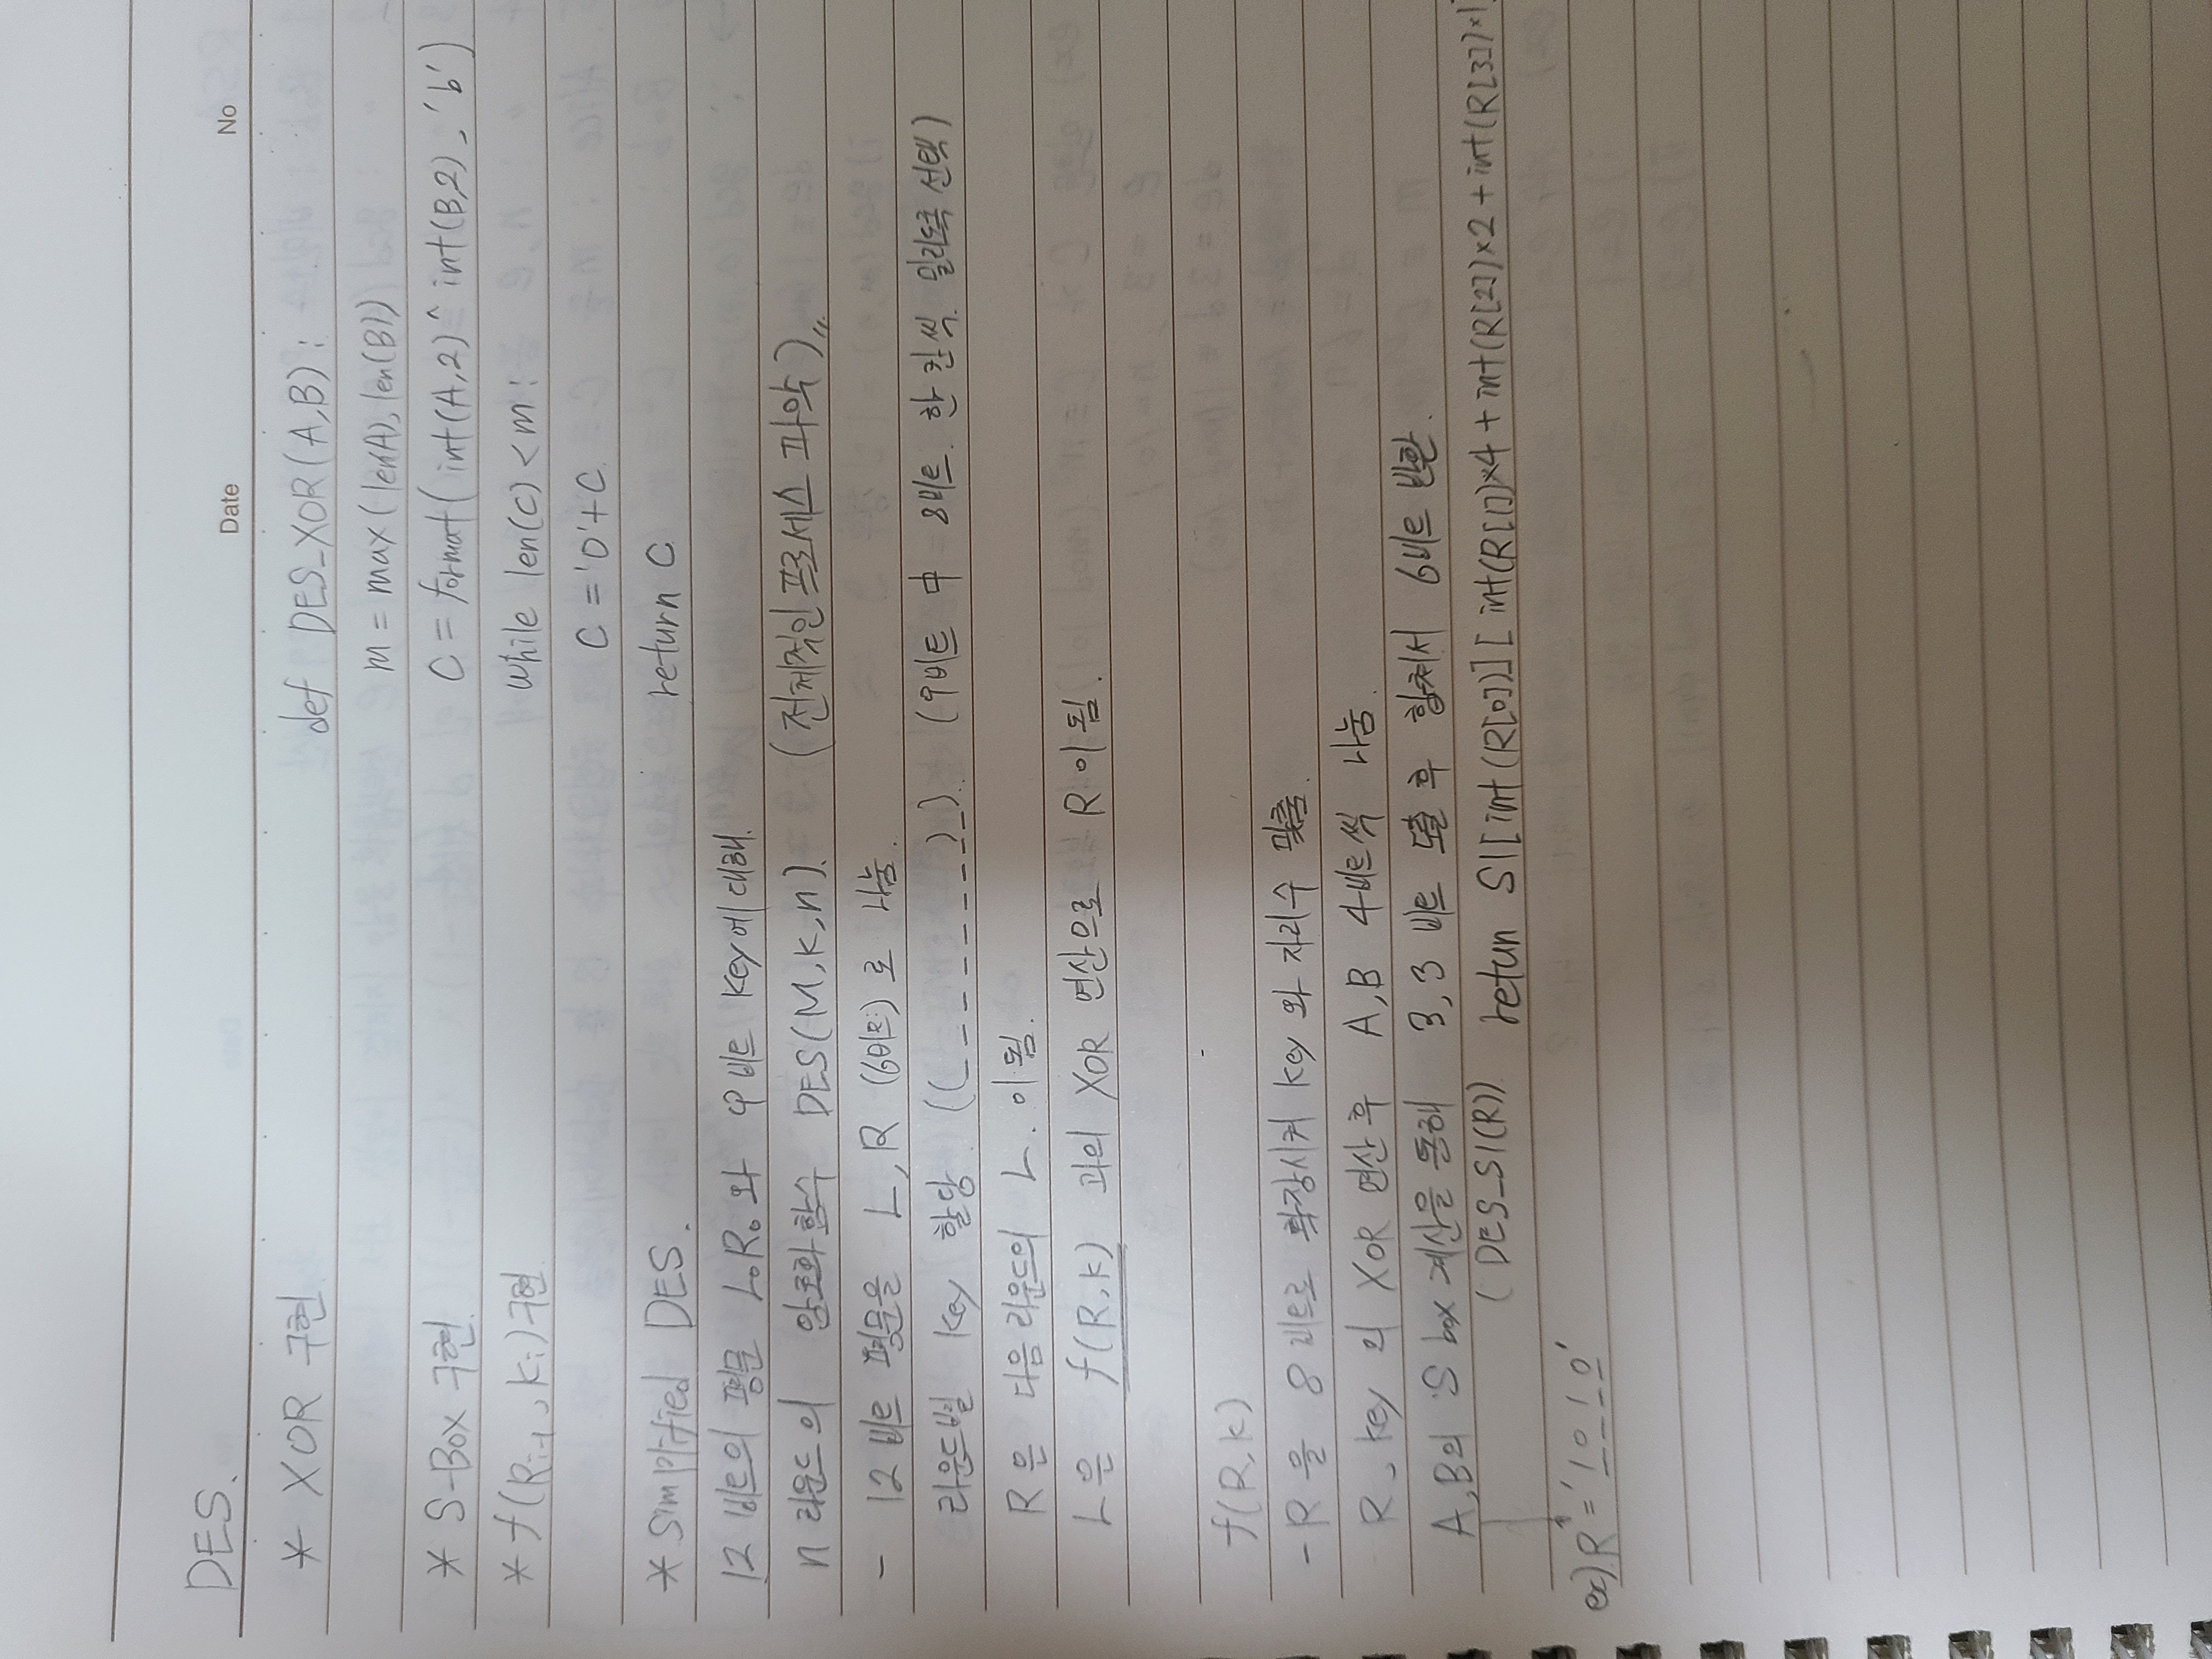 DES.
Date No
* XOR 구현. def DES_XOR(A,B):
m = max(len(A), len(B))
* S-Box 구현. C = format( int(A,2) ^ int(B,2), 'b')
* f(Ri-1, Ki) 구현. while len(C) < m:
C = '0'+C
* Simplified DES. return C
12 비트의 평문 L₀R₀ 와 9비트 Key에 대해.
n 라운드의 암호화 함수 DES(M,K,n). (전체적인 프로세스 파악)〃
- 12 비트 평문을 L, R (6비트)로 나눔.
라운드별 Key 할당 ((_ _ _ _ _ _ _ _)_). (9비트 中 8비트. 한 칸씩. 밀리도록 선택)
R은 다음 라운드의 L. 이 됨.
L은 f(R,k) 과의 XOR 연산으로 R 이 됨.
f(R,k)
- R을 8비트로 확장시켜 Key 와 자리수 맞춤.
R, key 의 XOR 연산 후 A,B 4비트씩 나눔.
A,B의 S box 계산을 통해 3,3 비트 도출 후 합쳐서 6비트 반환.
(DES_S1(R)) retun S1[int(R[0])][int(R[1])×4 + int(R[2])×2 + int(R[3])×1]
ex) R = '1010'